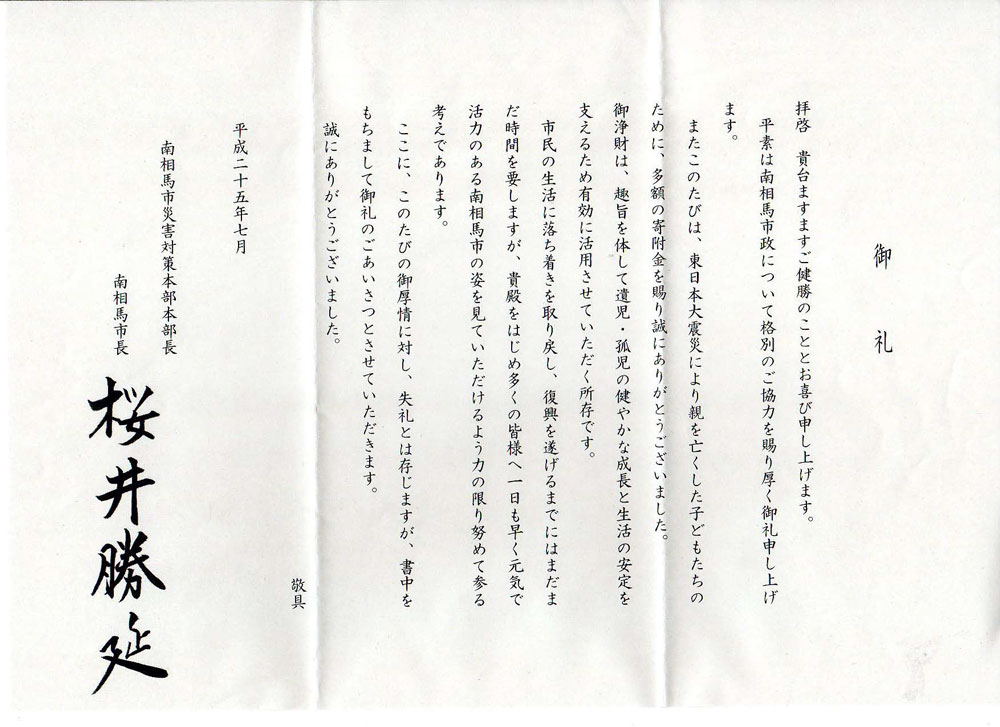 御礼
拝啓　貴台ますますご健勝のこととお喜び申し上げます。
平素は南相馬市政について格別のご協力を賜り厚く御礼申し上げ
ます。
またこのたびは、東日本大震災により親を亡くした子どもたちの
ために、多額の寄附金を賜り誠にありがとうございました。
御浄財は、趣旨を体して遺児・孤児の健やかな成長と生活の安定を
支えるため有効に活用させていただく所存です。
市民の生活に落ち着きを取り戻し、復興を遂げるまでにはまだま
だ時間を要しますが、貴殿をはじめ多くの皆様へ一日も早く元気で
活力のある南相馬市の姿を見ていただけるよう力の限り努めて参る
考えであります。
ここに、このたびの御厚情に対し、失礼とは存じますが、書中を
もちまして御礼のごあいさつとさせていただきます。
誠にありがとうございました。
敬具
平成二十五年七月
南相馬市災害対策本部本部長
南相馬市長
桜井勝延